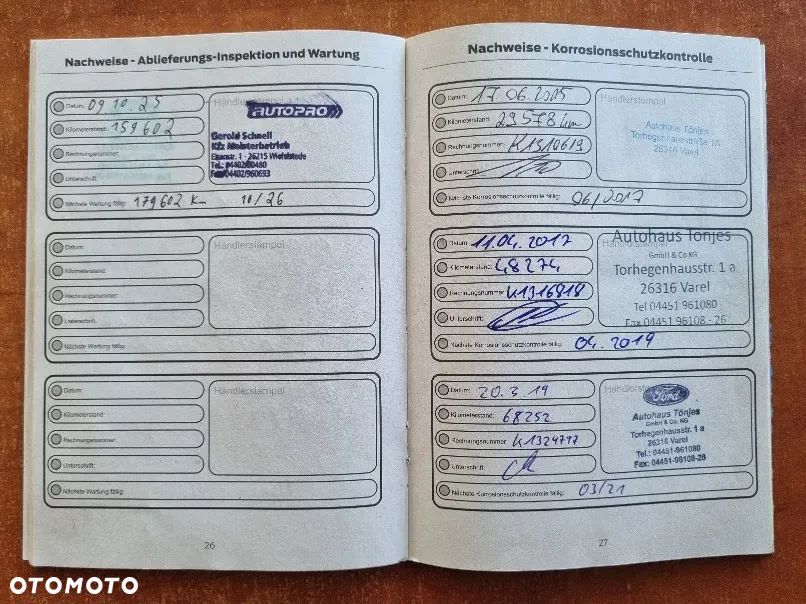 Nachweise - Ablieferungs-Inspektion und Wartung
Datum: 09 10. 25
Kilometerstand: 159602
Rechnungsnummer:
Unterschrift:
Nächste Wartung fällig: 179602 Km 10/26
Händlerstempel
AUTOPRO
Gerold Schnell
Kfz Meisterbetrieb
26215 Wiefelstede
Tel.: 04402/60480
Fax 04402/960693
Datum:
Kilometerstand:
Rechnungsnummer:
Unterschrift:
Nächste Wartung fällig:
Händlerstempel
Datum:
Kilometerstand:
Rechnungsnummer:
Unterschrift:
Nächste Wartung fällig:
Händlerstempel
26
Nachweise - Korrosionsschutzkontrolle
Datum: 17.06.2015
Kilometerstand: 29578 km
Rechnungsnummer: K1310619
Unterschrift:
Nächste Korrosionsschutzkontrolle fällig: 06/2017
Händlerstempel
Autohaus Tönjes
Torhegenhausstraße 1A
26316 Varel
Datum: 11.04.2017
Kilometerstand: 48274
Rechnungsnummer: K1316818
Unterschrift:
Nächste Korrosionsschutzkontrolle fällig: 04.2019
Händlerstempel
Autohaus Tönjes
GmbH & Co KG
Torhegenhausstr. 1 a
26316 Varel
Tel 04451 961080
Fax 04451 96108 - 26
Datum: 20.3.19
Kilometerstand: 68252
Rechnungsnummer: K1324717
Unterschrift:
Nächste Korrosionsschutzkontrolle fällig: 03/21
Händlerstempel
Ford
Autohaus Tönjes
GmbH & Co. KG
Torhegenhausstr. 1 a
26316 Varel
Tel.: 04451-961080
Fax: 04451-96108-26
27
OTOMOTO